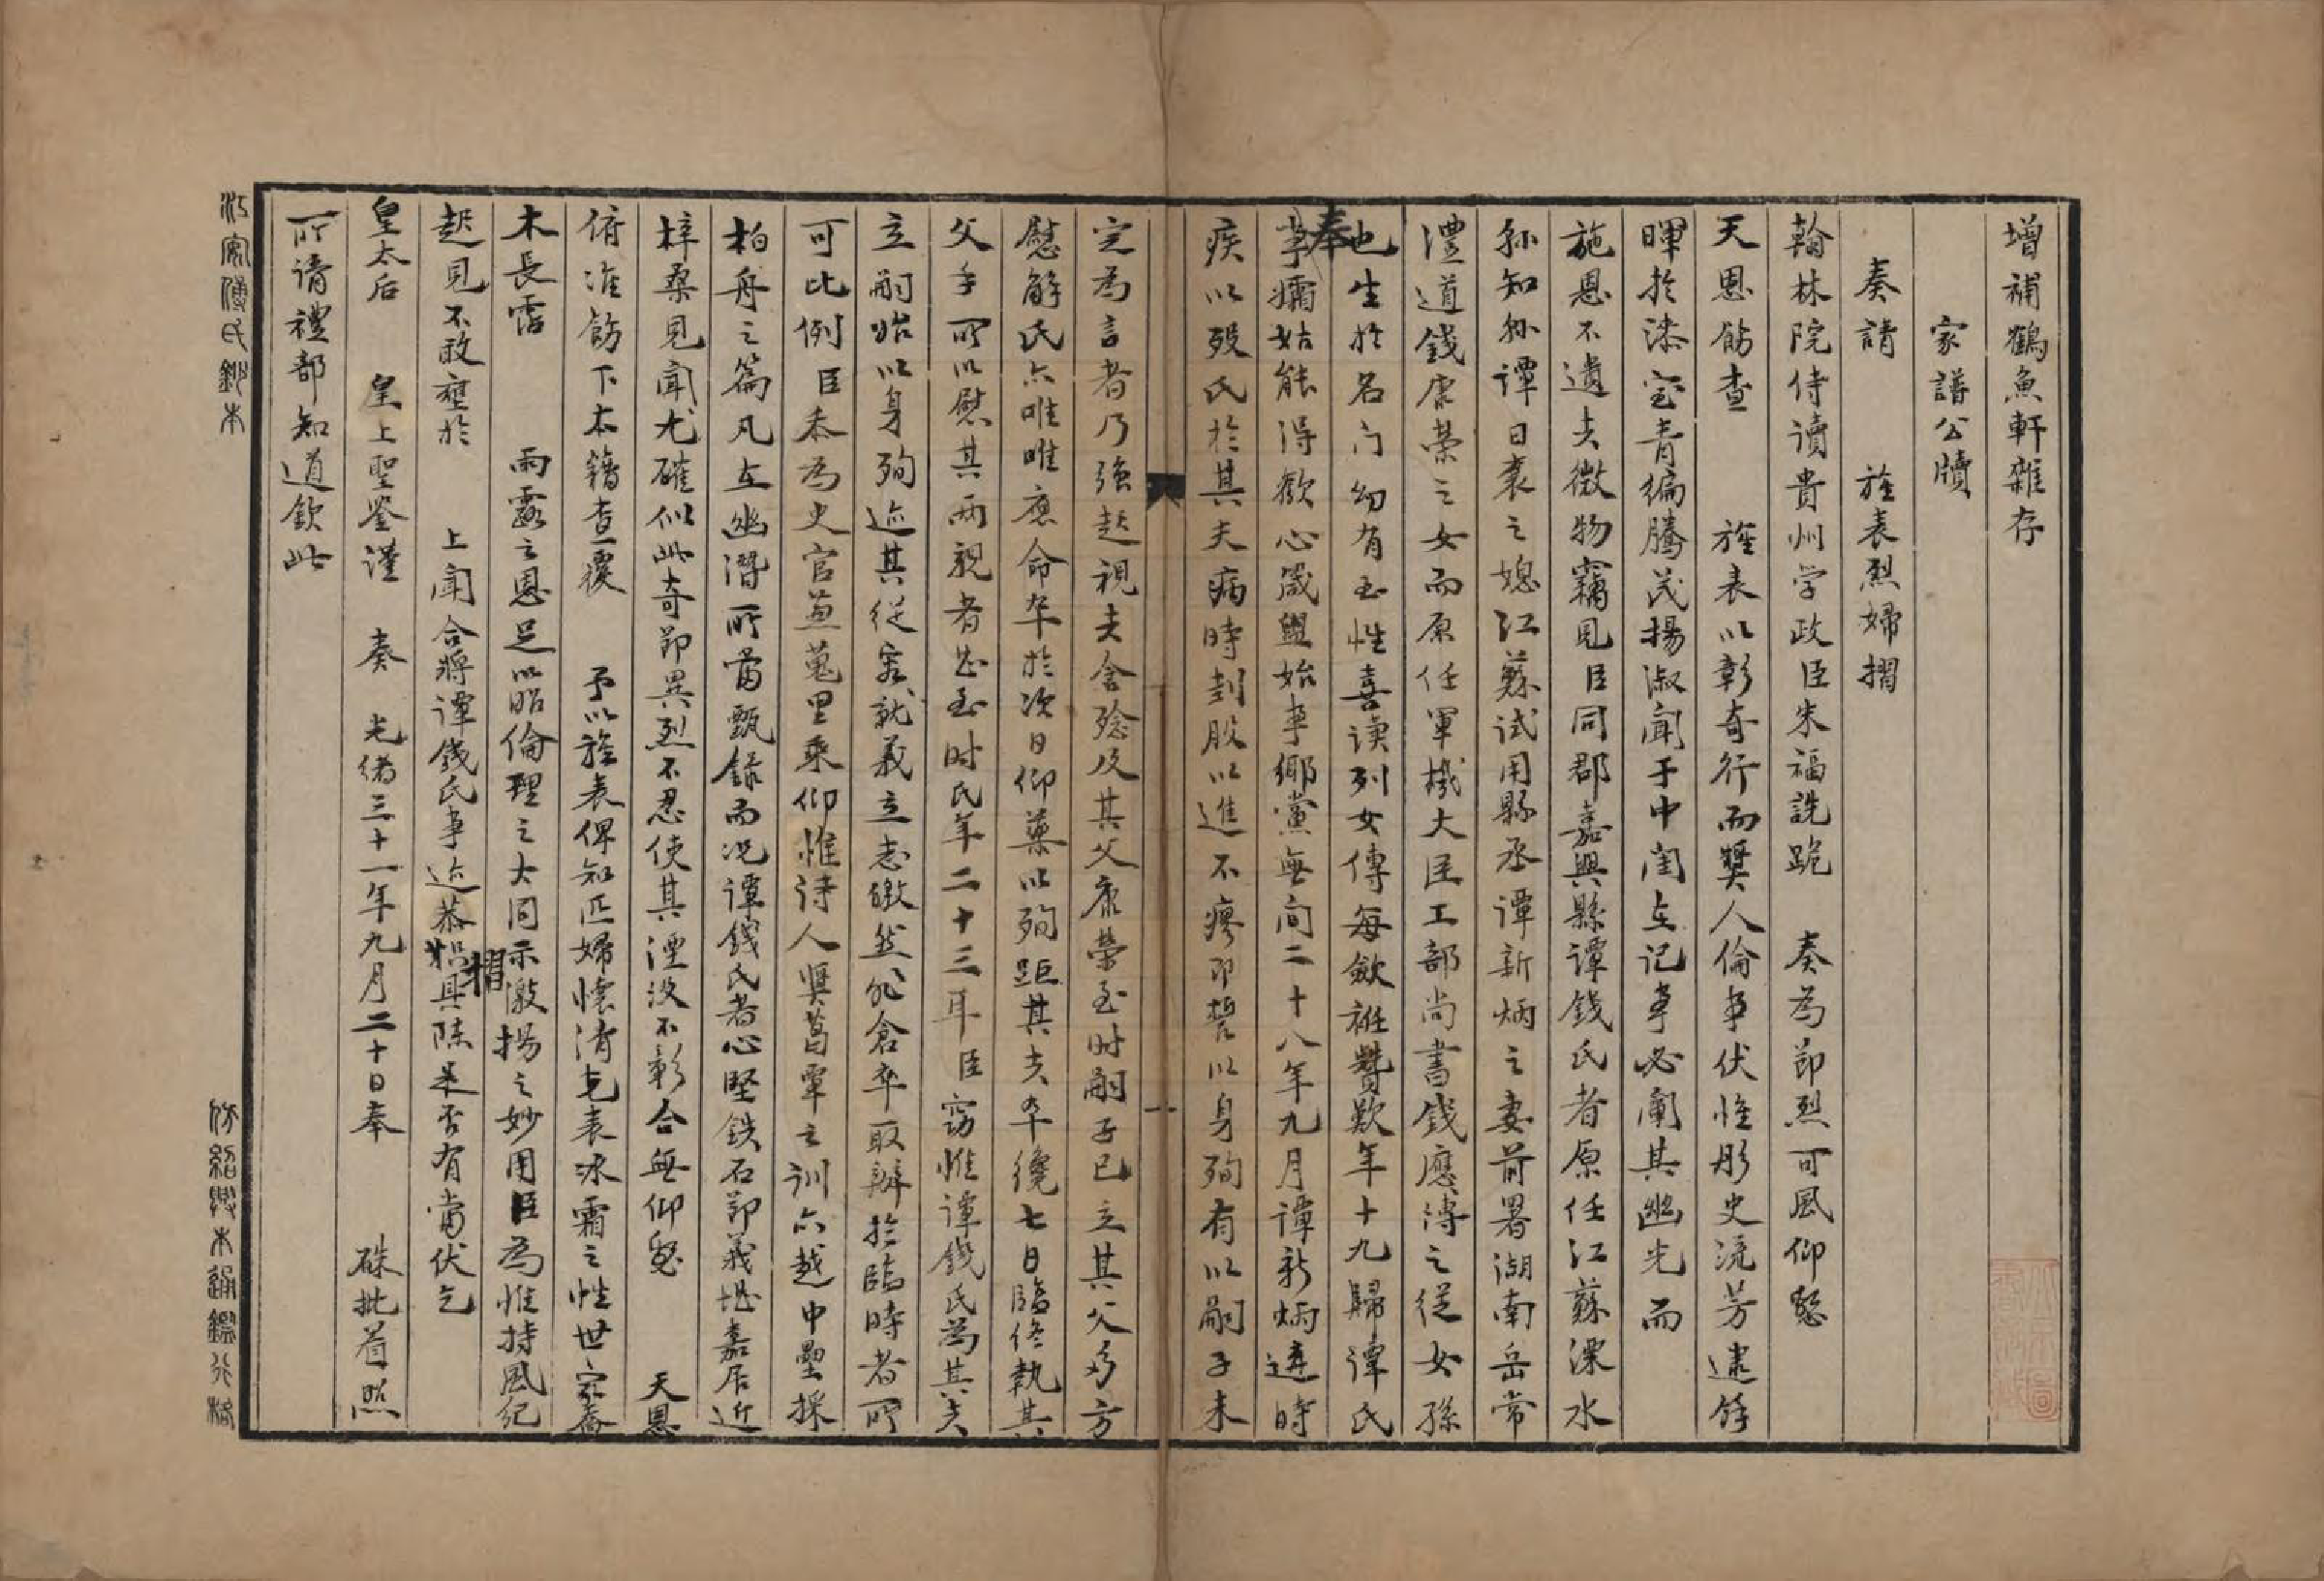 增補鶴魚軒雜存
家譜公牘
奏請　旌表烈婦摺
翰林院侍讀貴州学政臣朱福詵跪　奏為節烈可風仰懇
天恩飭查　旌表以彰奇行而奬人倫事伏惟彤史流芳逮餘
暉於漆室青編騰茂揚淑聞于中閨左记事必闡其幽光而
施恩不遺夫微物竊見臣同郡嘉興縣譚錢氏者原任江蘇溧水
縣知縣譚日襄之媳江蘇試用縣丞譚新炳之妻前署湖南岳常
澧道錢康榮之女而原任軍機大臣工部尚書錢應溥之從女孫
也生於名门幼有至性喜读列女傳每斂袵贊歎年十九歸譚氏
奉事孀姑能得歡心箴盥始事鄉黨無间二十八年九月譚新炳遘時
疾以歿氏於其夫病時刲股以進不瘳即誓以身殉有以嗣子未
定為言者乃強起視夫含殮及其父康榮至时嗣子已立其父多方
慰解氏亦唯唯應命卒於次日仰藥以殉距其夫卒纔七日臨終執其
父手所以慰其兩親者甚至时氏年二十三耳臣窃惟譚錢氏為其夫
立嗣始以身殉迹其從容就義立志皦然非倉卒取辦於臨時者所
可比例臣忝為史官蒐里乘仰惟诗人巽葛覃之训亦越中壘採
柏舟之篇凡在幽潛所當甄録而况譚錢氏者心堅鉄石節義堪嘉居近
梓桑見闻尤確似此奇節異烈不忍使其湮没不彰合無仰懇　天恩
俯准飭下本籍查覆　予以旌表俾知匹婦懷清克表冰霜之性世家喬
木長霑　雨露之恩足以昭倫理之大同示激揚之妙用臣為惟持風纪
起見不敢壅於　上聞合將譚錢氏事迹恭摺具陈是否有當伏乞
皇太后　皇上聖鉴谨　奏　光緒三十一年九月二十日奉　硃批着照
所请禮部知道欽此
江安傅氏鈔本
仿紹興本通鑑行格